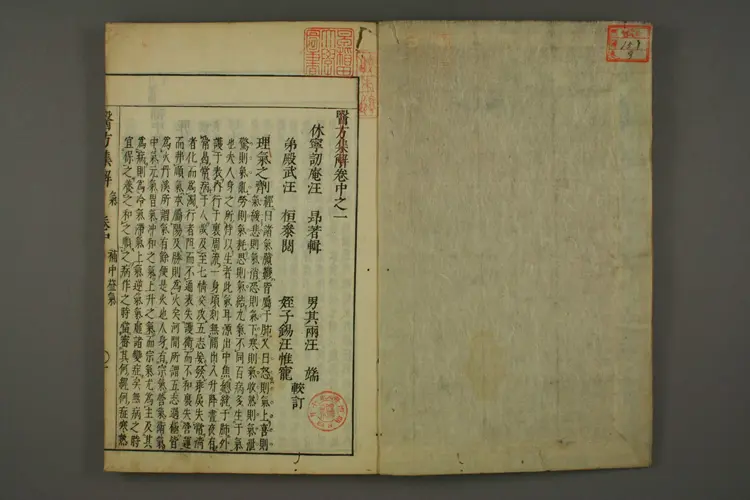 醫方集解卷中之一
休寧訒庵汪 昂著輯 男其兩汪 端
弟殿武汪 桓參閱 姪子錫汪惟寵 較訂
理氣之劑 經曰諸氣膹鬱皆屬于肺又曰怒則氣上喜則
氣緩悲則氣消恐則氣下寒則氣收熱則氣泄
驚則氣亂勞則氣耗思則氣結九氣不同百病多生于氣
也夫人身之所恃以生者此氣耳源出中焦總統于肺外
護于表内行于裏周流一身頃刻無間出入升降晝夜有
常曷常病于人哉及至七情交攻五志妄發乖戾失常清
者化而為濁行者阻而不通表失護衛而不和裏失營運
而弗順氣本屬陽及勝則為火矣河間所謂五志過極皆
為火丹溪所謂氣有餘便是火也人身有宗氣營氣衛氣
中氣元氣胃氣沖和之氣上升之氣而宗氣尤為主及其
為病則為冷氣滯氣上氣逆氣氣虛諸變症矣無病之時
宜保之養之和之順之病作之時當審其何經何症寒熱
醫方集解 氣 卷中 補中益氣